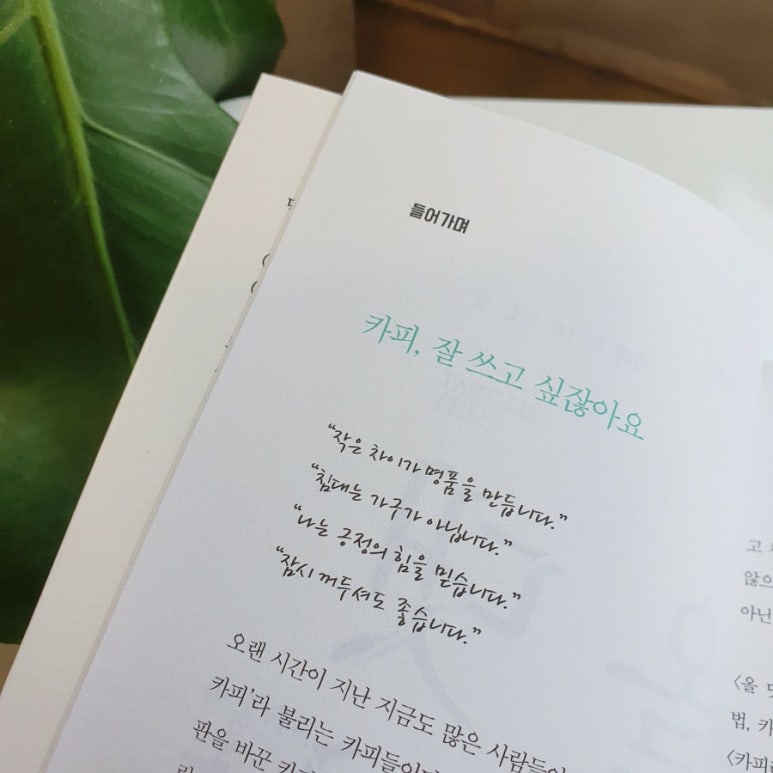 들어가며
카피, 잘 쓰고 싶잖아요
“작은 차이가 명품을 만듭니다.”
“침대는 가구가 아닙니다.”
“나는 긍정의 힘을 믿습니다.”
“잠시 꺼두셔도 좋습니다.”
오랜 시간이 지난 지금도 많은 사람들이
카피’라 불리는 카피들이
판을 바꾼
고
않으
아닌
법, 카